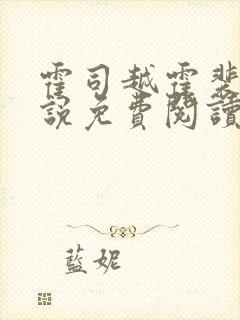 霍司越霍斐
說免費閱讀
藍妮